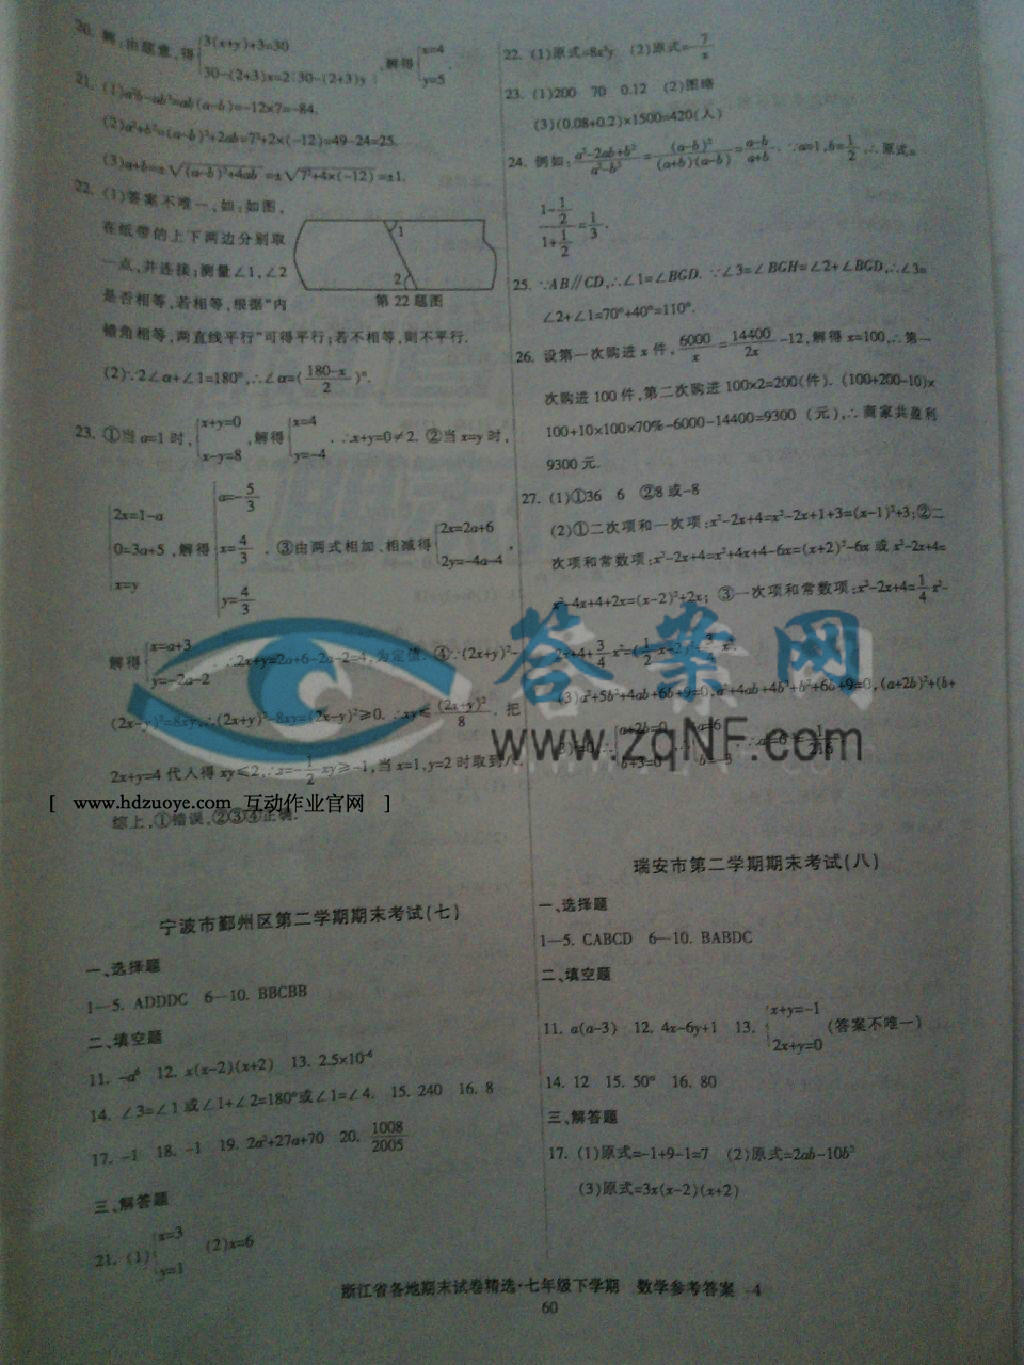 20. 解:由题意,得{3(x+y)+3=30
30-(2+3)x=2[30-(2+3)y],解得{x=4
y=5.
21. (1)a³b-ab³=ab(a-b)=-12×7=-84.
(2)a²+b²=(a-b)²+2ab=7²+2×(-12)=49-24=25.
(3)a+b=±√(a-b)²+4ab=±√7²+4×(-12)=±1.
22. (1)答案不唯一,如:如图,
在纸带的上下两边分别取
一点,并连接;测量∠1,∠2
是否相等,若相等,根据"内
错角相等,两直线平行"可得平行;若不相等,则不平行.
1
2
第22题图
(2)∵2∠α+∠1=180°,∴∠α=(180-x/2)°.
23. ①当a=1时,{x+y=0
x-y=8,解得{x=4
y=-4,∴x+y=0≠2. ②当x=y时,
{2x=1-a
0=3a+5
x=y,解得{a=-5/3
x=4/3
y=4/3. ③由两式相加、相减得{2x=2a+6
2y=-4a-4,
解得{x=a+3
y=-2a-2,∴2x+y=2a+6-2a-2=4,为定值. ④∵(2x+y)²-
(2x-y)²=8xy,∴(2x+y)²-8xy=(2x-y)²≥0. ∴xy≤(2x+y)²/8,把
2x+y=4代入得xy≤2,∴z=-1/2xy≥-1,当x=1,y=2时取到
综上,①错误,②③④正确.
宁波市鄞州区第二学期期末考试(七)
一、选择题
1—5. ADDDC 6—10. BBCBB
二、填空题
11. -a⁶ 12. x(x-2)(x+2) 13. 2.5×10⁻⁴
14. ∠3=∠1或∠1+∠2=180°或∠1=∠4. 15. 240 16. 8
17. -1 18. -1 19. 2a²+27a+70 20. 1008/2005
三、解答题
21. (1){x=3
y=1 (2)x=6
22. (1)原式=8x³y (2)原式=-7/x
23. (1)200 70 0.12 (2)图略
(3)(0.08+0.2)×1500=420(人)
24. 例如:a²-2ab+b²/a²-b²=(a-b)²/(a+b)(a-b)=a-b/a+b. ∵a=1,b=1/2,∴原式=
1-1/2/1+1/2=1/3.
25. ∵AB∥CD,∴∠1=∠BGD. ∵∠3=∠BGH=∠2+∠BGD,∴∠3=
∠2+∠1=70°+40°=110°.
26. 设第一次购进x件,6000/x=14400/2x-12,解得x=100,∴第一
次购进100件,第二次购进100×2=200(件). (100+200-10)×
100+10×100×70%-6000-14400=9300(元),∴商家共盈利
9300元.
27. (1)①36 6 ②8或-8
(2)①二次项和一次项:x²-2x+4=x²-2x+1+3=(x-1)²+3;②二
次项和常数项:x²-2x+4=x²+4x+4-6x=(x+2)²-6x或x²-2x+4=
x²-4x+4+2x=(x-2)²+2x; ③一次项和常数项:x²-2x+4=1/4x²-
2x+4+3/4x²=(1/2x-2)²+3/4x².
(3)a²+5b²+4ab+6b+9=0,a²+4ab+4b²+b²+6b+9=0,(a+2b)²+(b+
3)²=0,∴{a+2b=0
b+3=0,∴{a=6
b=-3
1/216
瑞安市第二学期期末考试(八)
一、选择题
1—5. CABCD 6—10. BABDC
二、填空题
11. a(a-3) 12. 4x-6y+1 13. {x+y=-1
2x+y=0(答案不唯一)
14. 12 15. 50° 16. 80
三、解答题
17. (1)原式=-1+9-1=7 (2)原式=2ab-10b³
(3)原式=3x(x-2)(x+2)
浙江省各地期末试卷精选·七年级下学期 数学参考答案 -4
60
答案网
www.zqNF.com
[ www.hdzuoye.com 互动作业官网 ]